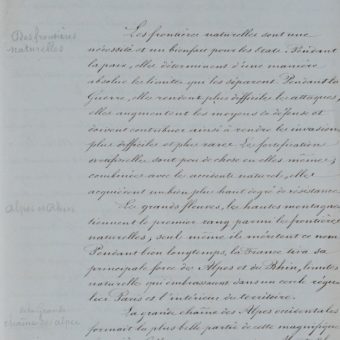 Des frontières
naturelles
Les frontières naturelles sont une
nécessité et un bienfait pour les états. Pendant
la paix, elles déterminent d'une manière
absolue les limites qui les séparent. Pendant la
Guerre, elles rendent plus difficiles les attaques,
elles augmentent les moyens de défense et
doivent contribuer ainsi à rendre les invasions
plus difficiles et plus rares. Les fortifications
artificielles sont peu de chose en elles mêmes;
combinées avec les accidents naturels, elles
acquièrent un bien plus haut degré de résistance.
Alpes et Rhin
Les grands fleuves, les hautes montagnes
tiennent le premier rang parmi les frontières
naturelles, seuls même ils méritent ce nom.
Pendant bien longtemps, la France tira sa
principale force des Alpes et du Rhin, limites
naturelles qui embrassent dans un cercle régu-
lier Paris et l'intérieur du territoire.
de la Grande
chaîne des Alpes
La grande chaîne des Alpes occidentales
formait la plus belle partie de cette magnifique